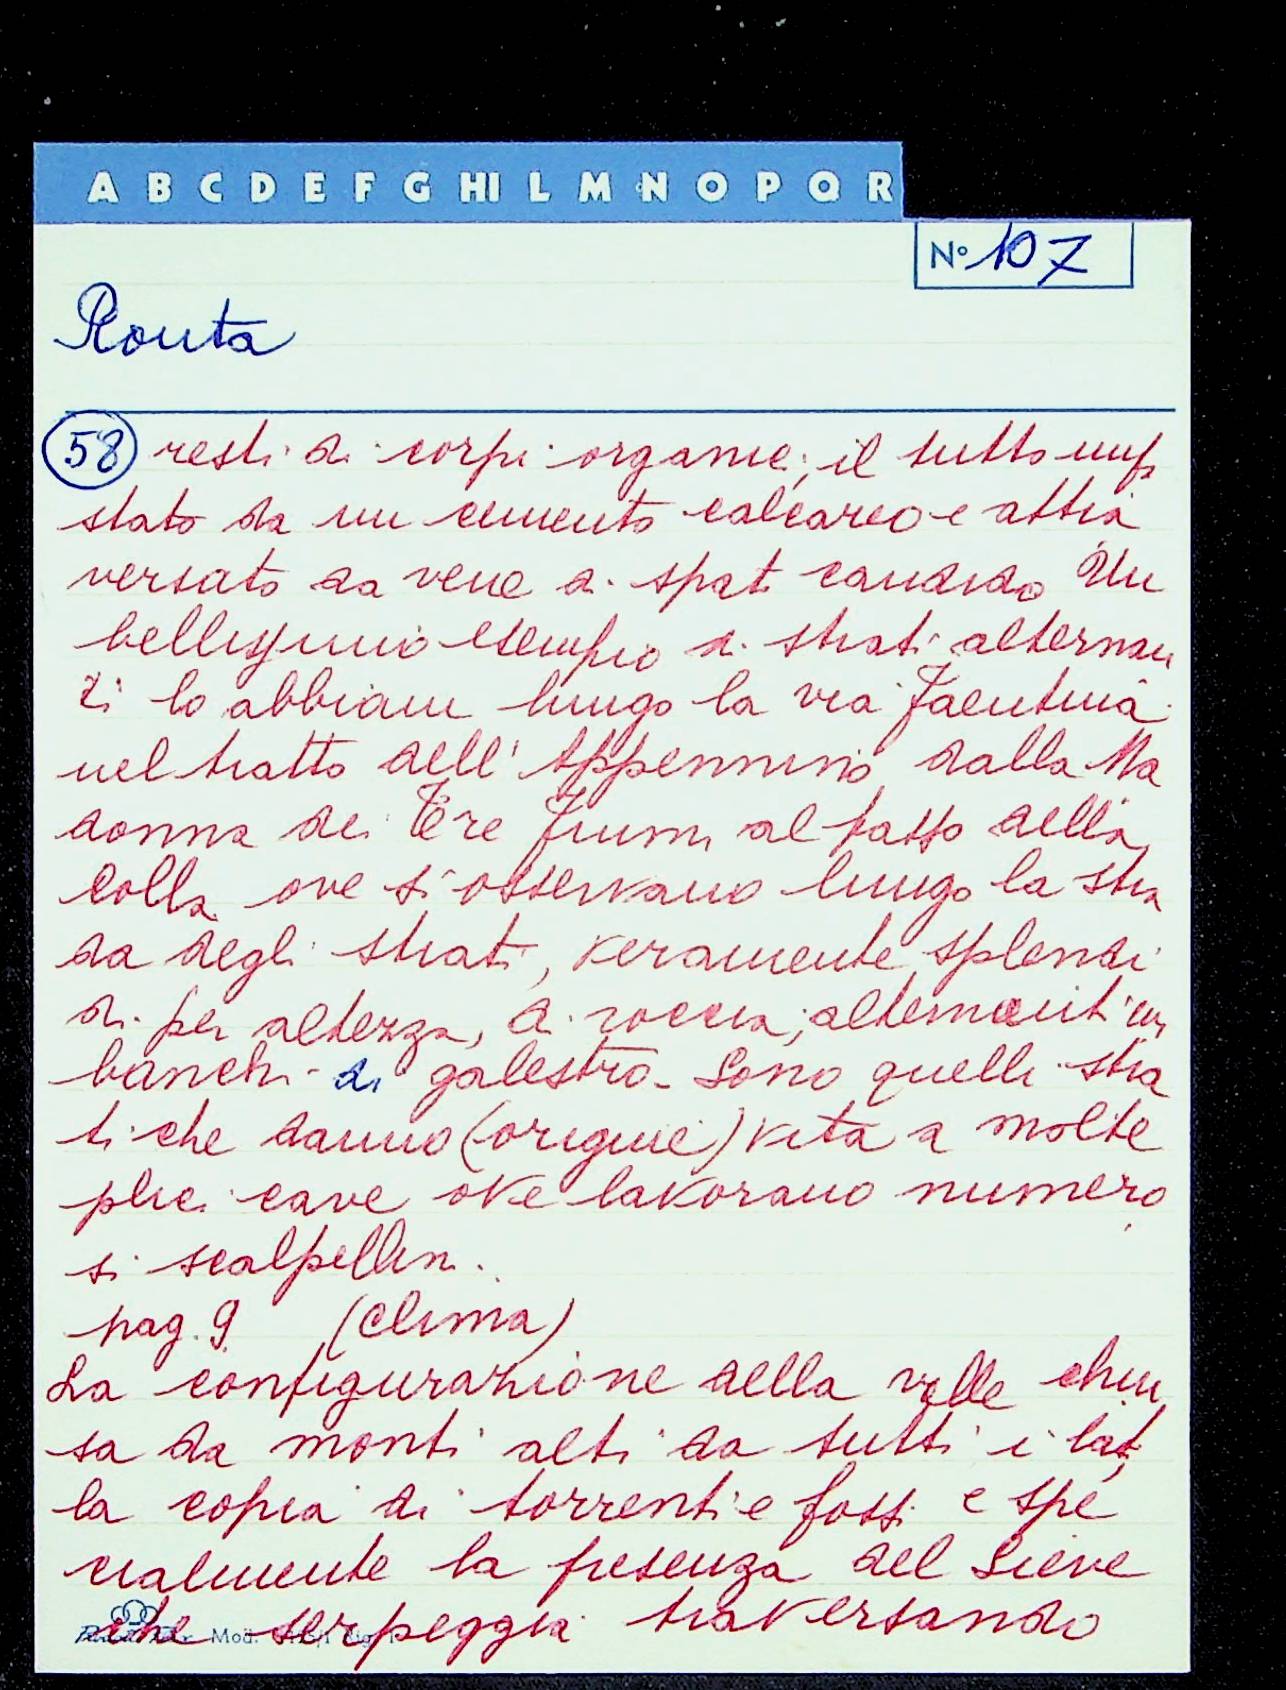 A B C D E F G HI L M N O P Q R
N° 107
Ronta
58 resti di corpi organici, il tutto imp
stato da un cemento calcareo e attra
versato da vene di spat candido Un
bellissimo esempio di strati alternan
ti lo abbiam lungo la via Faentina
nel tratto dell'Appennino dalla Ma
donna dei Tre Fiumi al passo della
Colla ove si osservano lungo la stra
da degli strati, veramente splendi
di per altezza, di roccia, alternanti con
banchi di galestro - Sono quelli stra
ti che danno (origine) vita a molte
plici cave ove lavorano numero
si scalpellini.
pag. 9 (Clima)
La configurazione della valle chiu
sa da monti alti da tutti i lati,
la copia di torrenti e fossi e spe
cialmente la presenza del Sieve
che serpeggia traversando
Mod.